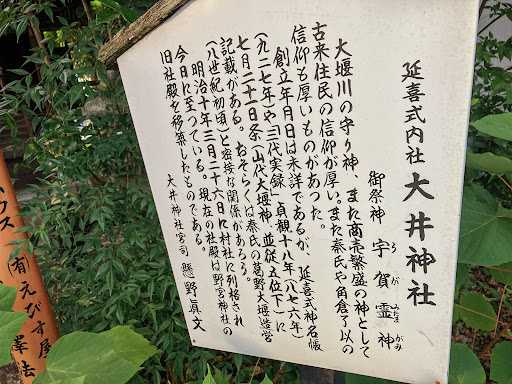 延喜式内社 大井神社
御祭神 宇賀霊神
うがみたまがみ
大堰川の守り神、また商売繁盛の神として
古来住民の信仰が厚い。また秦氏や角倉了以の
信仰も厚いものがあつた。
創立年月日は未詳であるが、延喜式神名帳
(九二七年)や三代実録「貞観十八年(八七六年)
七月二十一日条(山代大堰神、並従五位下)に
記載がある。おそらくは秦氏の葛野大堰造営
(八世紀初頃)と密接な関係があろう。
明治十年三月二十六日に村社に列格され
今日に至つている。現在の社殿は野宮神社の
旧社殿を移築したものである。
大井神社宮司 懸野眞文
ハウス
(有)えびす屋